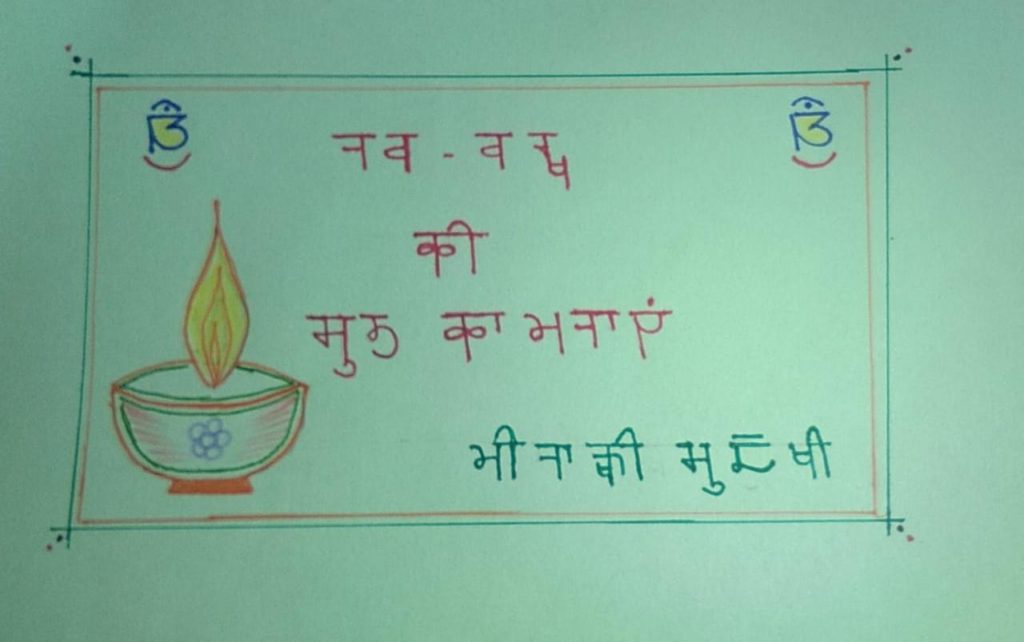 नव - वर्ष
की
शुभ कामनाएं
मीनाक्षी